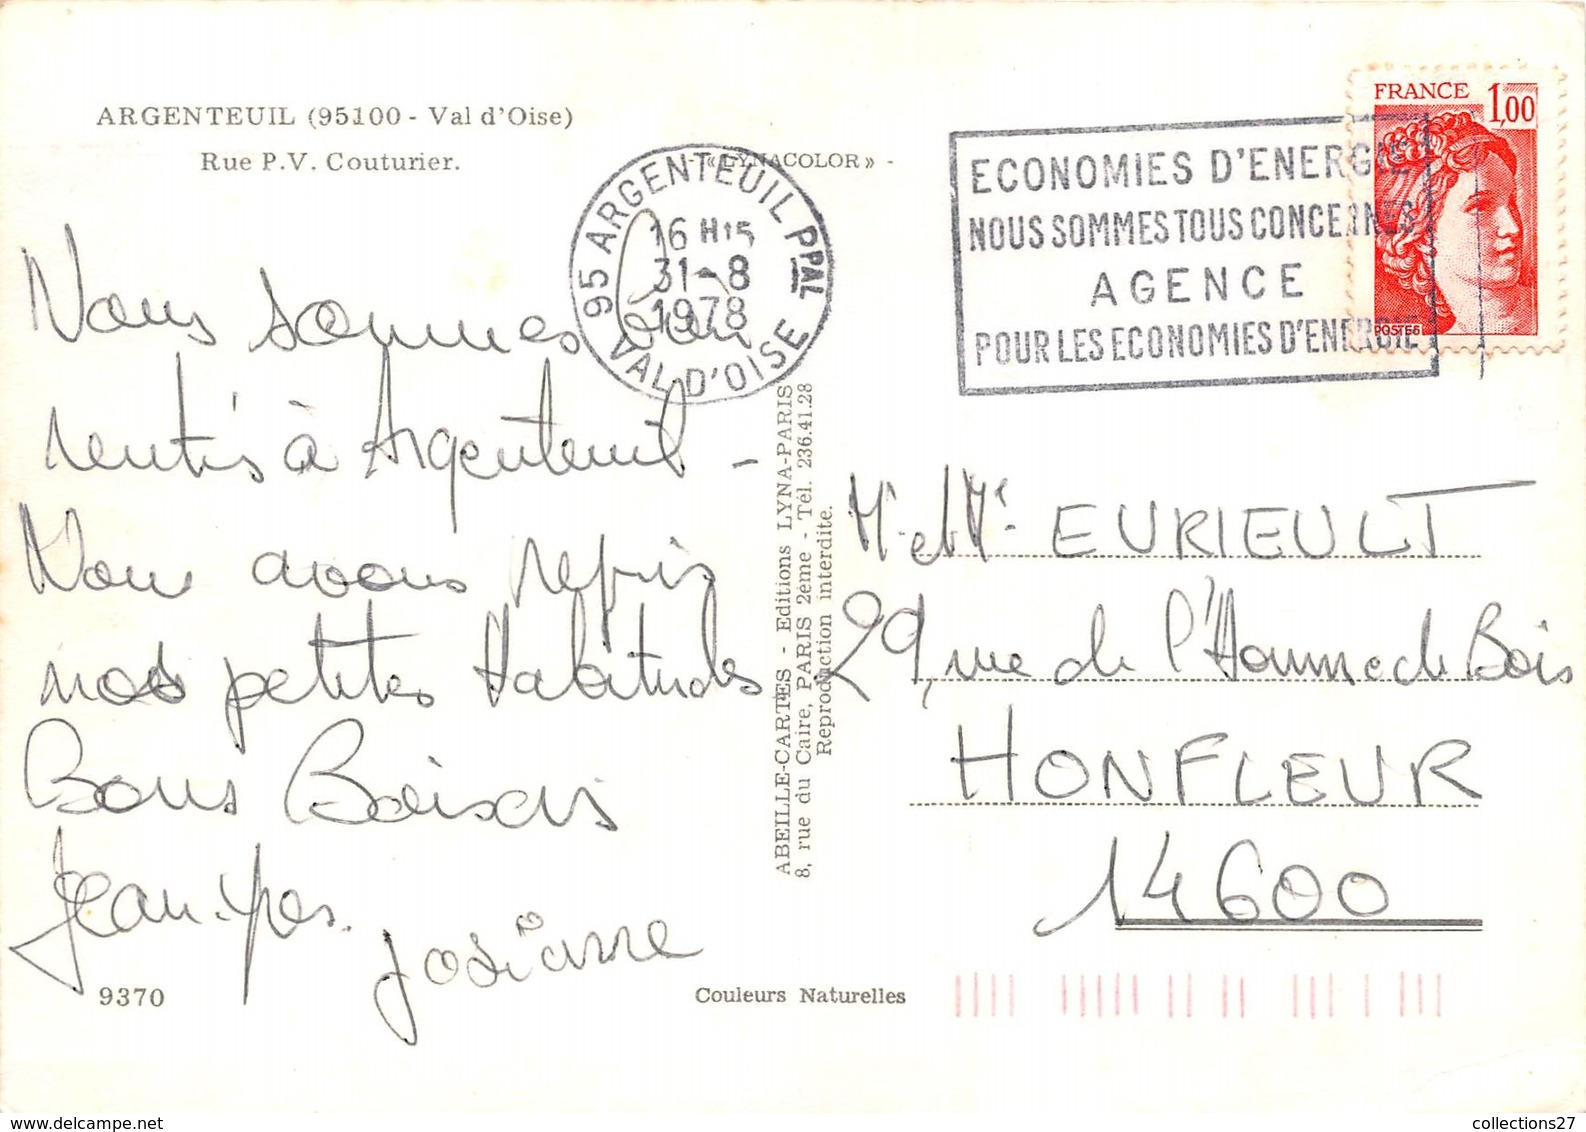 ARGENTEUIL (95100 - Val d'Oise)
Rue P.V. Couturier.
- « LYNACOLOR » -
95 ARGENTEUIL PPAL
16 H15
31-8
1978
VAL D'OISE
ECONOMIES D'ENERGIE
NOUS SOMMES TOUS CONCERNES
AGENCE
POUR LES ECONOMIES D'ENERGIE
FRANCE 1,00
POSTES
Nous sommes bien
rentrés à Argenteuil -
Nous avons repris
nos petites habitudes
Bons Baisers
Jean-Yves.
Josianne
ABEILLE-CARTES - Editions LYNA-PARIS
8, rue du Caire, PARIS 2ème - Tél. 236.41.28
Reproduction interdite.
Mr et Me EURIEULT
29, rue de l'Homme de Bois
HONFLEUR
14600
9370
Couleurs Naturelles
www.delcampe.net
collections27